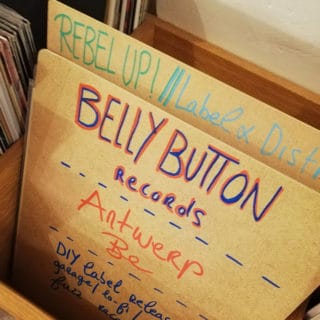 REBEL UP! // Label &
BELLY BUTTON
RECORDS
Antwerp
Be
DIY label
garage / lo-fi /
fuzz